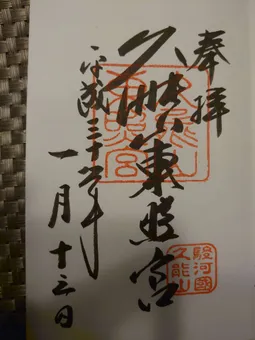 奉拝
久能山東照宮
平成年
一月十三日
駿河國
久能山